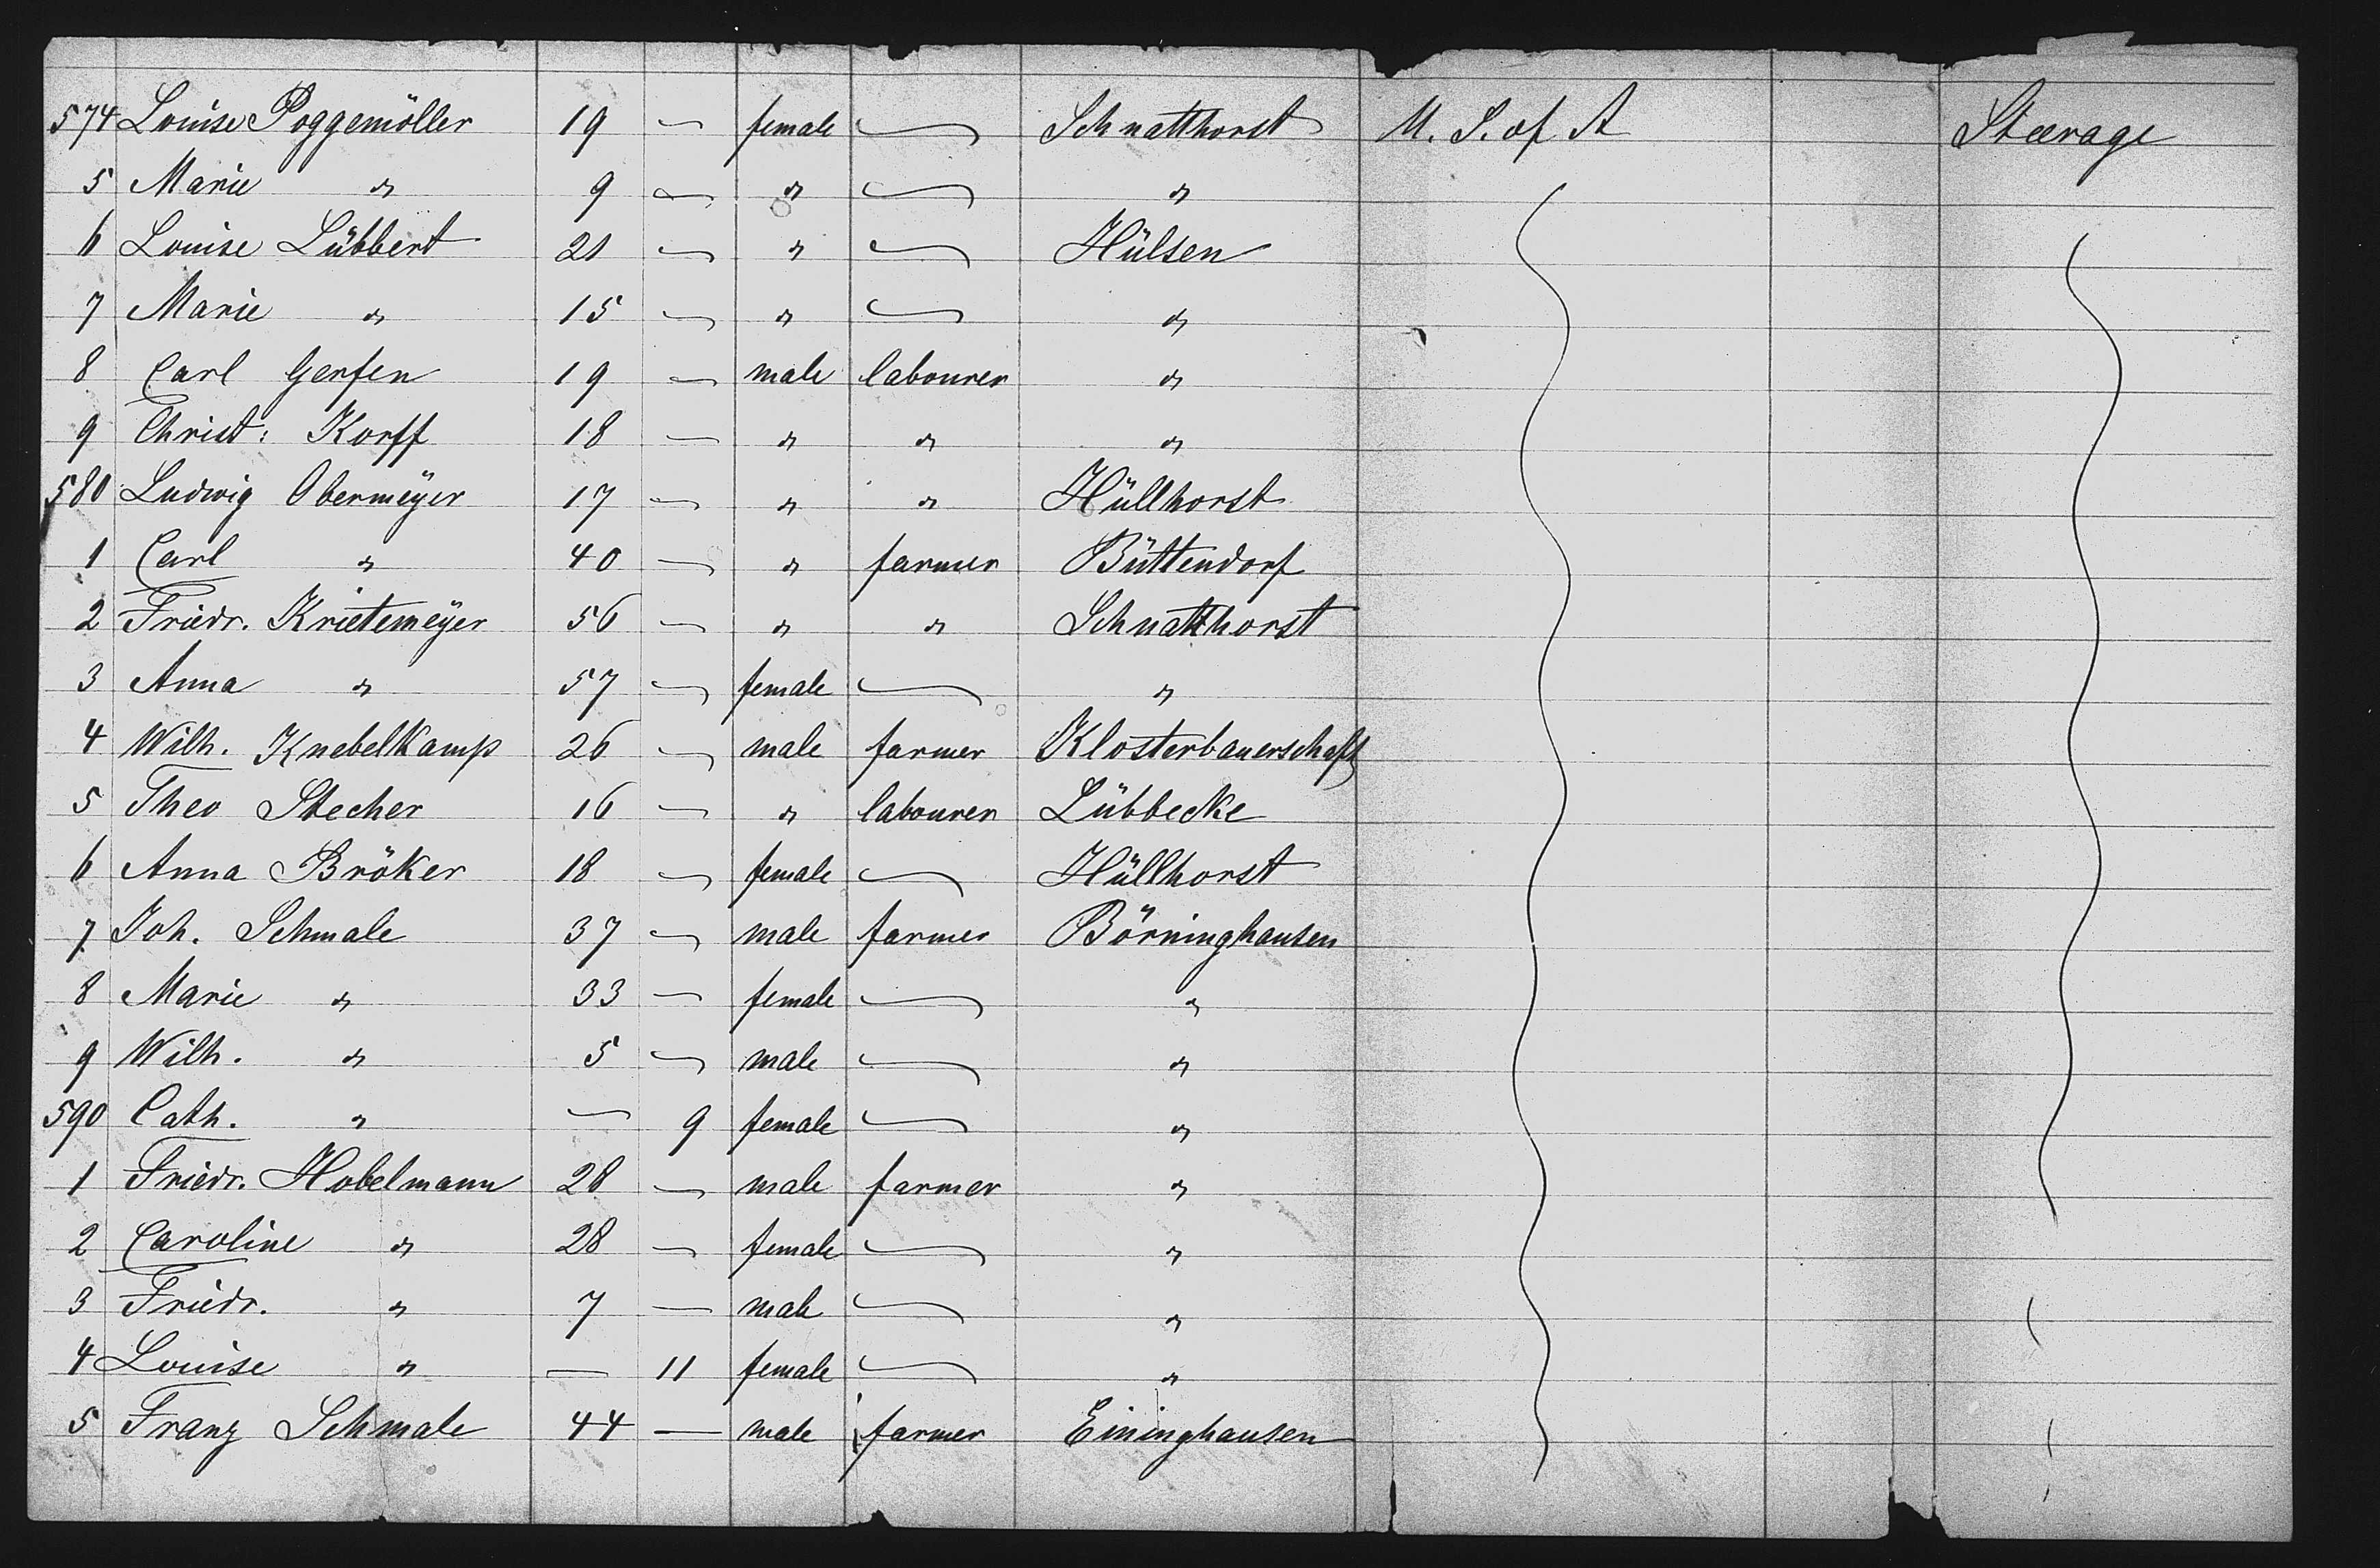 574 Louise Poggemöller 19 — female — Schnatthorst U. S. of A Steerage
5 Marie " 9 — " — "
6 Louise Lübbert 21 — " — Hülsen
7 Marie " 15 — " — "
8 Carl Gerfen 19 — male labourer "
9 Christ: Korff 18 — " " "
580 Ludwig Obermeÿer 17 — " " Hüllhorst
1 Carl " 40 — " farmer Büttendorf
2 Friedr. Krietemeÿer 56 — " " Schnatthorst
3 Anna " 57 — female — "
4 Wilh. Knebelkamp 26 — male farmer Klosterbauerschaft
5 Theo Stecher 16 — " labourer Lübbecke
6 Anna Bröker 18 — female — Hüllhorst
7 Joh. Schmale 37 — male farmer Börninghausen
8 Marie " 33 — female — "
9 Wilh. " 5 — male — "
590 Cath. " — 9 female — "
1 Friedr. Hobelmann 28 — male farmer "
2 Caroline " 28 — female — "
3 Friedr. " 7 — male — "
4 Louise " — 11 female — "
5 Franz Schmale 44 — male farmer Eininghausen